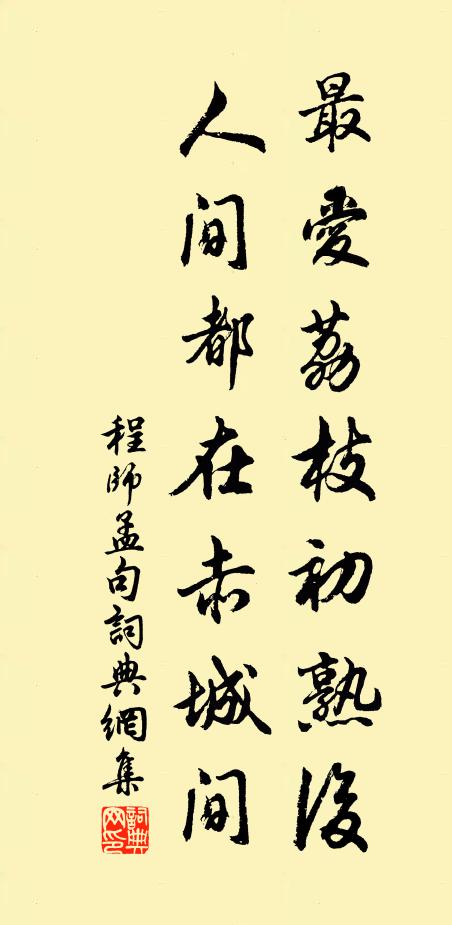 最愛荔枝初熟後
人间都在赤城间
程師孟句詞典網集
詞典网印